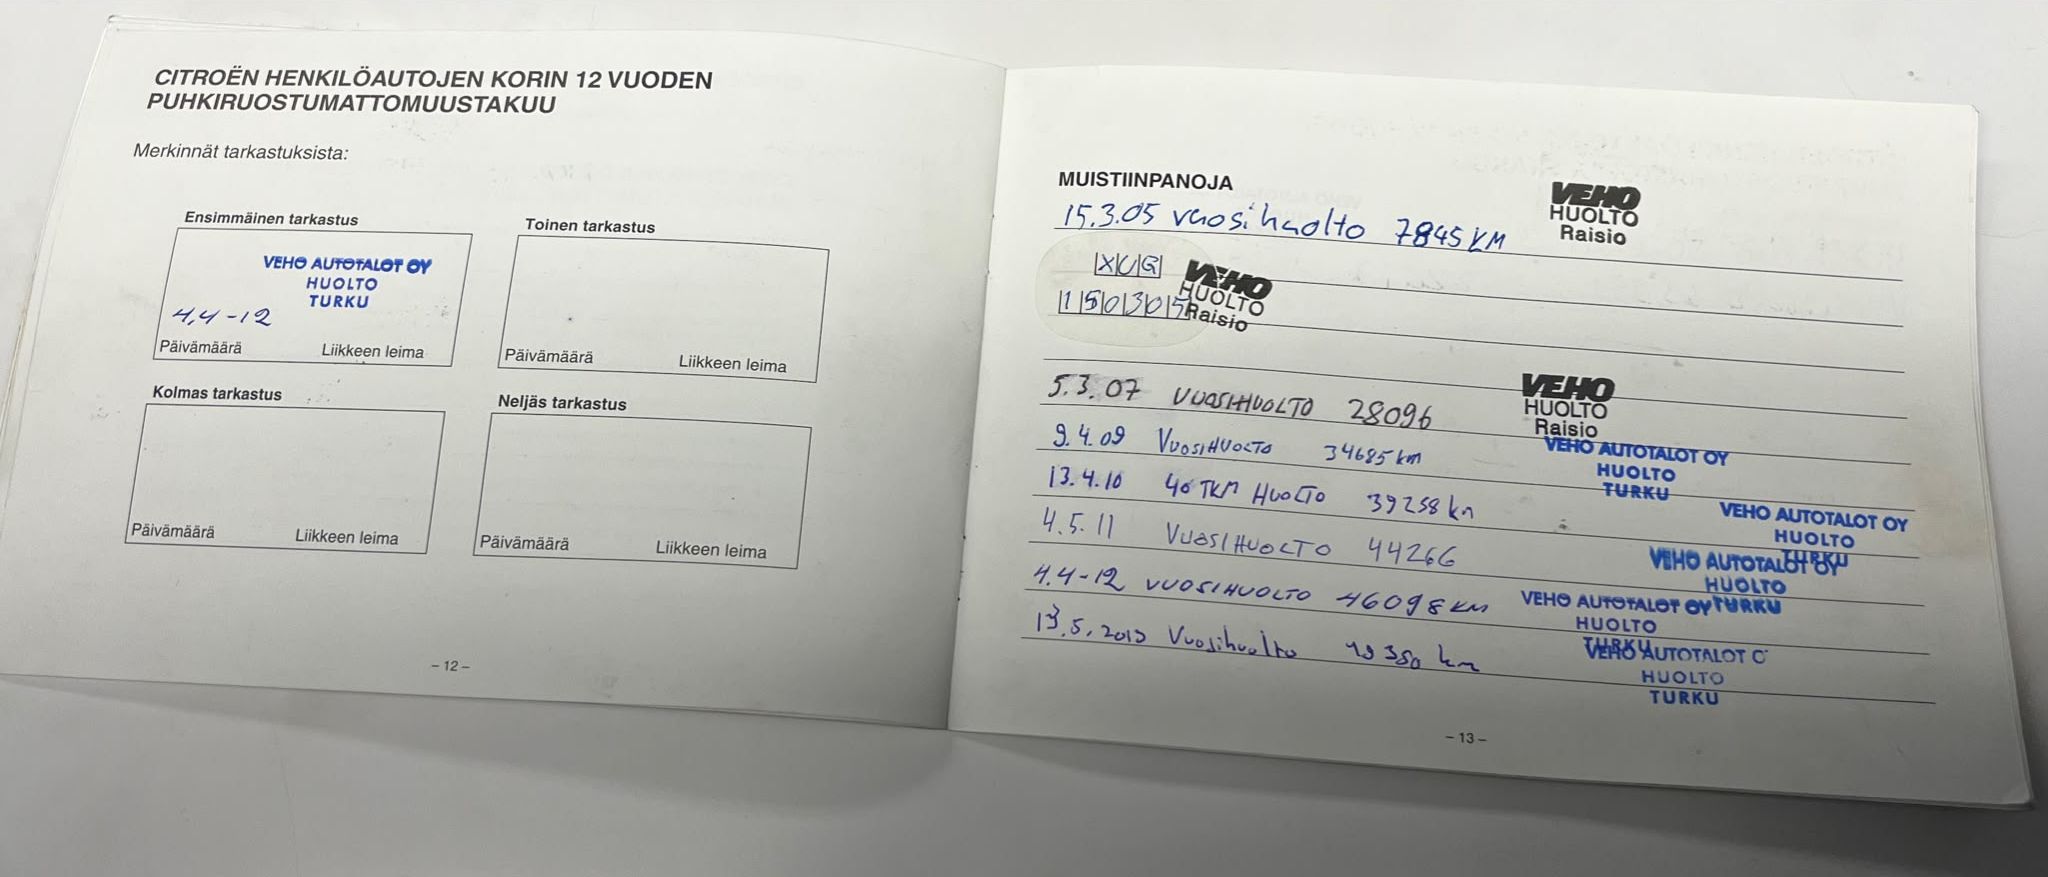 CITROËN HENKILÖAUTOJEN KORIN 12 VUODEN
PUHKIRUOSTUMATTOMUUSTAKUU
Merkinnät tarkastuksista:
Ensimmäinen tarkastus
VEHO AUTOTALOT OY
HUOLTO
TURKU
4.4-12
Päivämäärä Liikkeen leima
Toinen tarkastus
Päivämäärä Liikkeen leima
Kolmas tarkastus
Päivämäärä Liikkeen leima
Neljäs tarkastus
Päivämäärä Liikkeen leima
- 12 -
MUISTIINPANOJA
15.3.05 vuosihuolto 7845 KM
VEHO
HUOLTO
Raisio
XUG
150305
VEHO
HUOLTO
Raisio
5.3.07 VUOSIHUOLTO 28096
VEHO
HUOLTO
Raisio
9.4.09 VUOSIHUOLTO 34685 km
VEHO AUTOTALOT OY
HUOLTO
TURKU
13.4.10 40 TKM HUOLTO 39258 km
VEHO AUTOTALOT OY
HUOLTO
TURKU
4.5.11 VUOSIHUOLTO 44266
VEHO AUTOTALOT OY
HUOLTO
TURKU
4.4-12 VUOSIHUOLTO 46098 KM
VEHO AUTOTALOT OY
HUOLTO
TURKU
13.5.2013 Vuosihuolto km
VEHO AUTOTALOT O
HUOLTO
TURKU
- 13 -